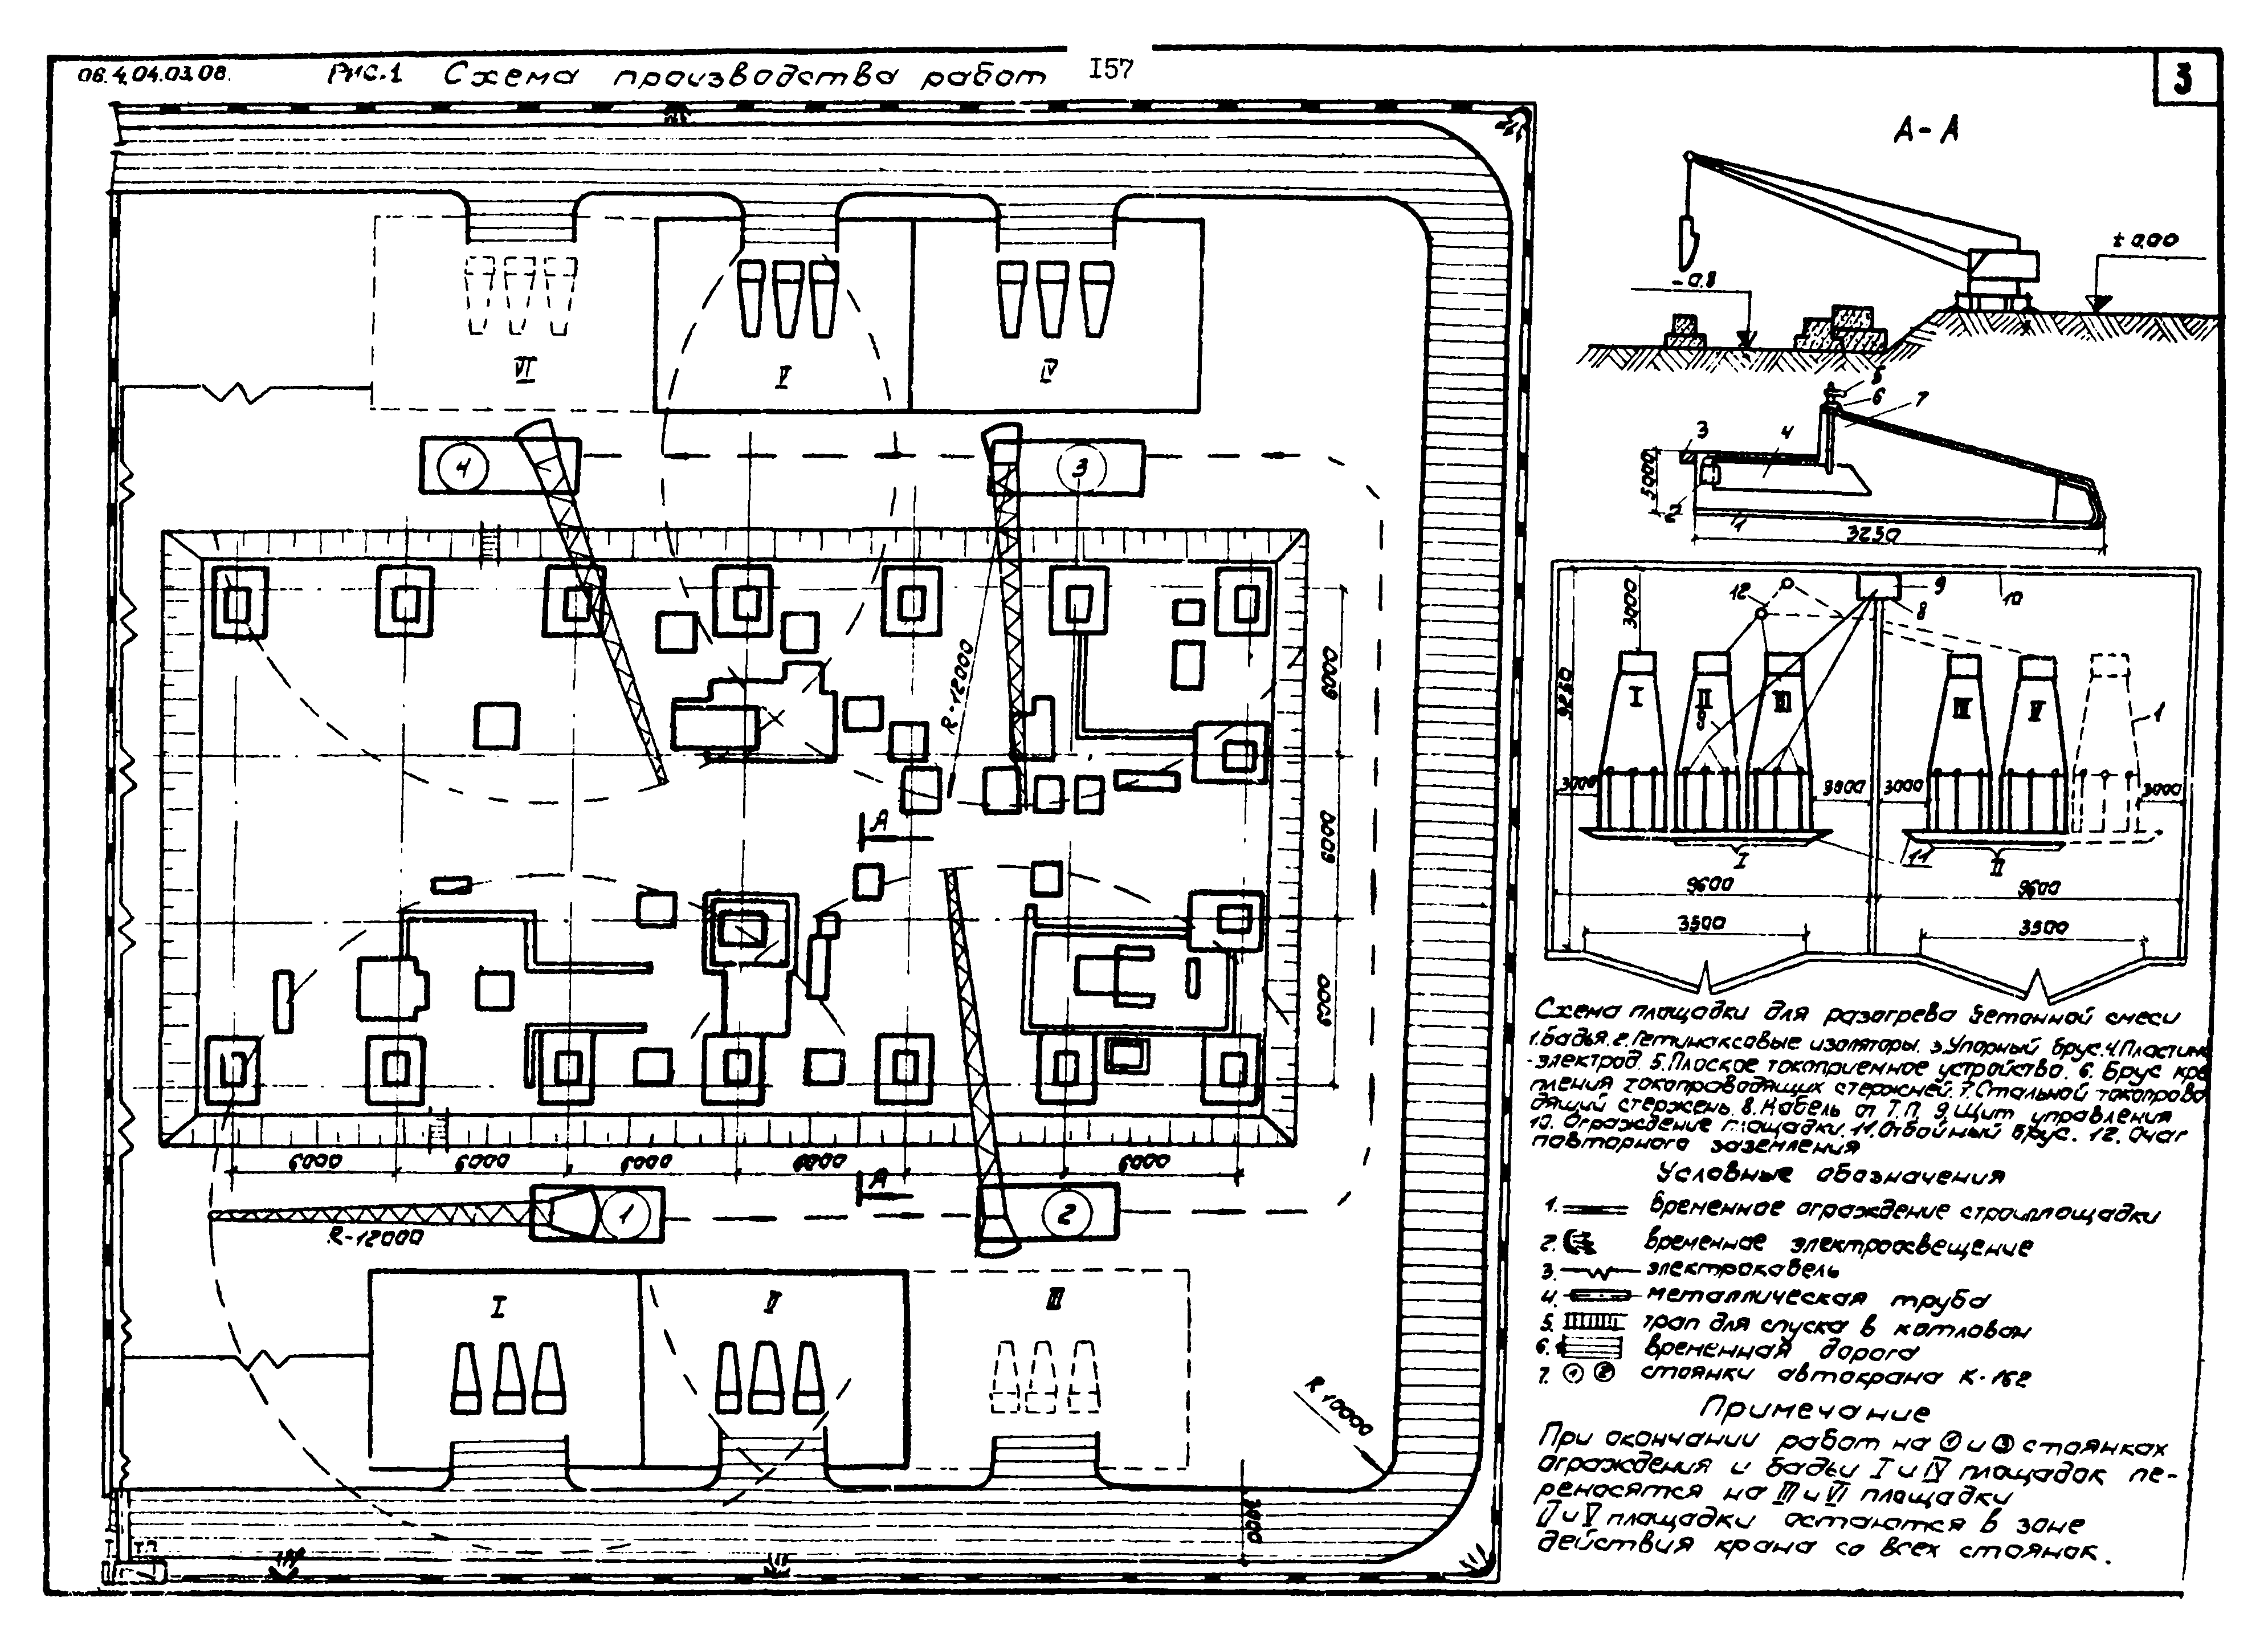 06.4.04.03.08.
Рис.1 Схема производства работ
157
3
А-А
± 0,00
-0.8
5
6
7
3
4
5000
2
1
3250
VI
V
IV
4
3
R-12000
6000
6000
6000
А
6000
6000
6000
6000
6000
А
1
2
R-12000
I
II
III
R 10000
3500
ТП
12
9
8
10
3000
9250
I
II
III
IV
V
1
3000
3000
3000
3000
I
11
II
9600
9600
3500
3500
Схема площадки для разогрева бетонной смеси
1.Бадья. 2.Гетинаксовые изоляторы. 3.Упорный брус. 4.Пластина
-электрод. 5.Плоское токоприемное устройство. 6. Брус кре
пления токопроводящих стержней. 7.Стальной токопрово
дящий стержень. 8.Кабель от Т.П. 9.Щит управления
10. Ограждение площадки. 11.Отбойный брус. 12. Очаг
повторного заземления
Условные обозначения
1. временное ограждение стройплощадки
2. временное электроосвещение
3. электрокабель
4. металлическая труба
5. трап для спуска в котлован
6. временная дорога
7. 1 2 стоянки автокрана К-162
Примечание
При окончании работ на 1 и 3 стоянках
ограждения и бадьи I и IV площадок пе-
реносятся на III и VI площадки
II и V площадки остаются в зоне
действия крана со всех стоянок.